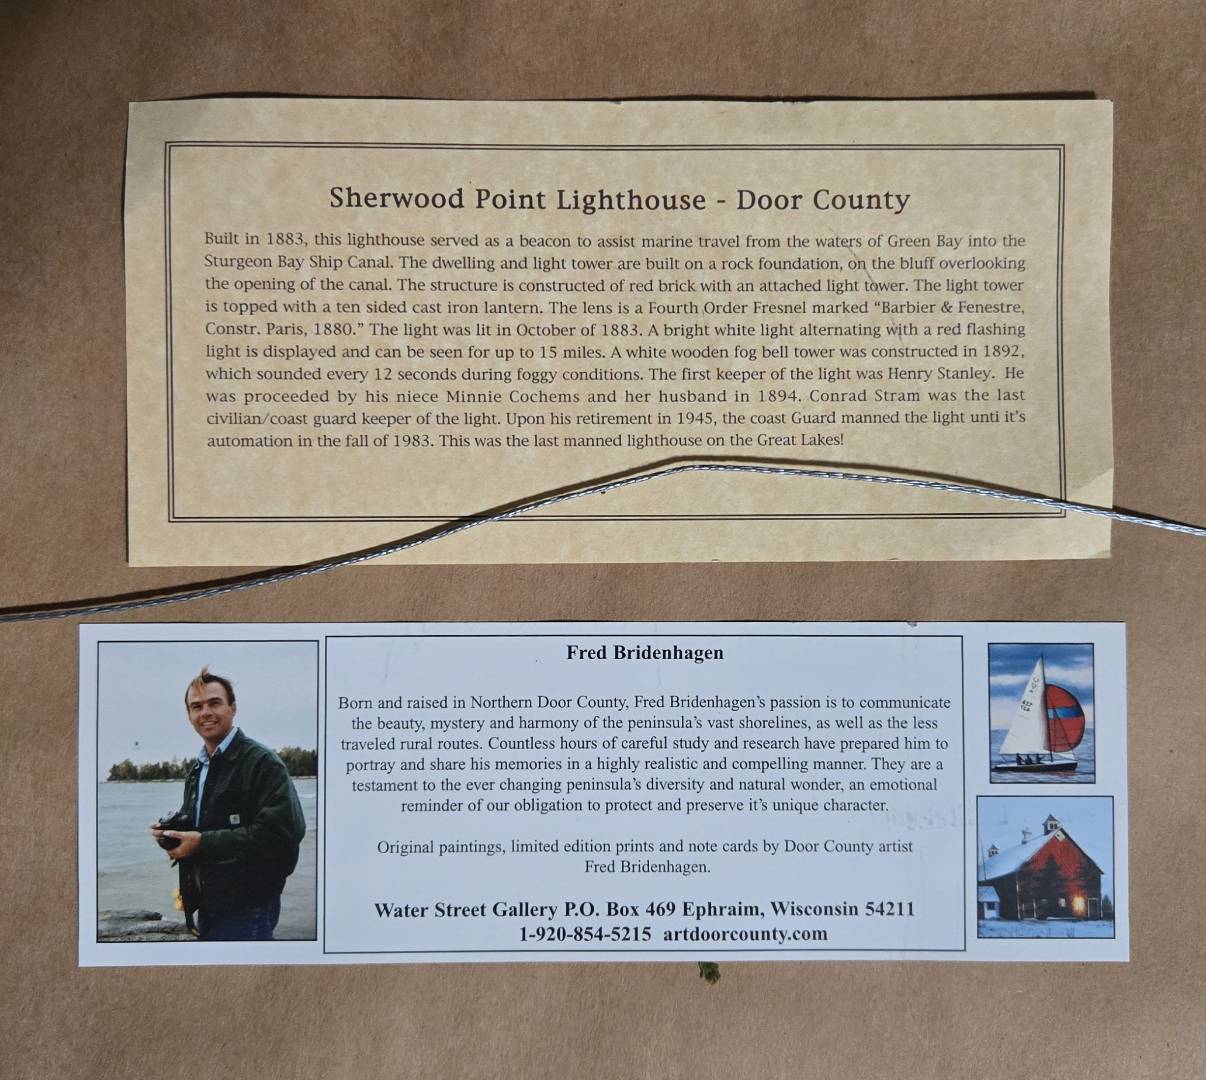 Sherwood Point Lighthouse - Door County
Built in 1883, this lighthouse served as a beacon to assist marine travel from the waters of Green Bay into the
Sturgeon Bay Ship Canal. The dwelling and light tower are built on a rock foundation, on the bluff overlooking
the opening of the canal. The structure is constructed of red brick with an attached light tower. The light tower
is topped with a ten sided cast iron lantern. The lens is a Fourth Order Fresnel marked “Barbier & Fenestre,
Constr. Paris, 1880.” The light was lit in October of 1883. A bright white light alternating with a red flashing
light is displayed and can be seen for up to 15 miles. A white wooden fog bell tower was constructed in 1892,
which sounded every 12 seconds during foggy conditions. The first keeper of the light was Henry Stanley. He
was proceeded by his niece Minnie Cochems and her husband in 1894. Conrad Stram was the last
civilian/coast guard keeper of the light. Upon his retirement in 1945, the coast Guard manned the light unti it's
automation in the fall of 1983. This was the last manned lighthouse on the Great Lakes!
Fred Bridenhagen
Born and raised in Northern Door County, Fred Bridenhagen's passion is to communicate
the beauty, mystery and harmony of the peninsula's vast shorelines, as well as the less
traveled rural routes. Countless hours of careful study and research have prepared him to
portray and share his memories in a highly realistic and compelling manner. They are a
testament to the ever changing peninsula's diversity and natural wonder, an emotional
reminder of our obligation to protect and preserve it's unique character.
Original paintings, limited edition prints and note cards by Door County artist
Fred Bridenhagen.
Water Street Gallery P.O. Box 469 Ephraim, Wisconsin 54211
1-920-854-5215 artdoorcounty.com